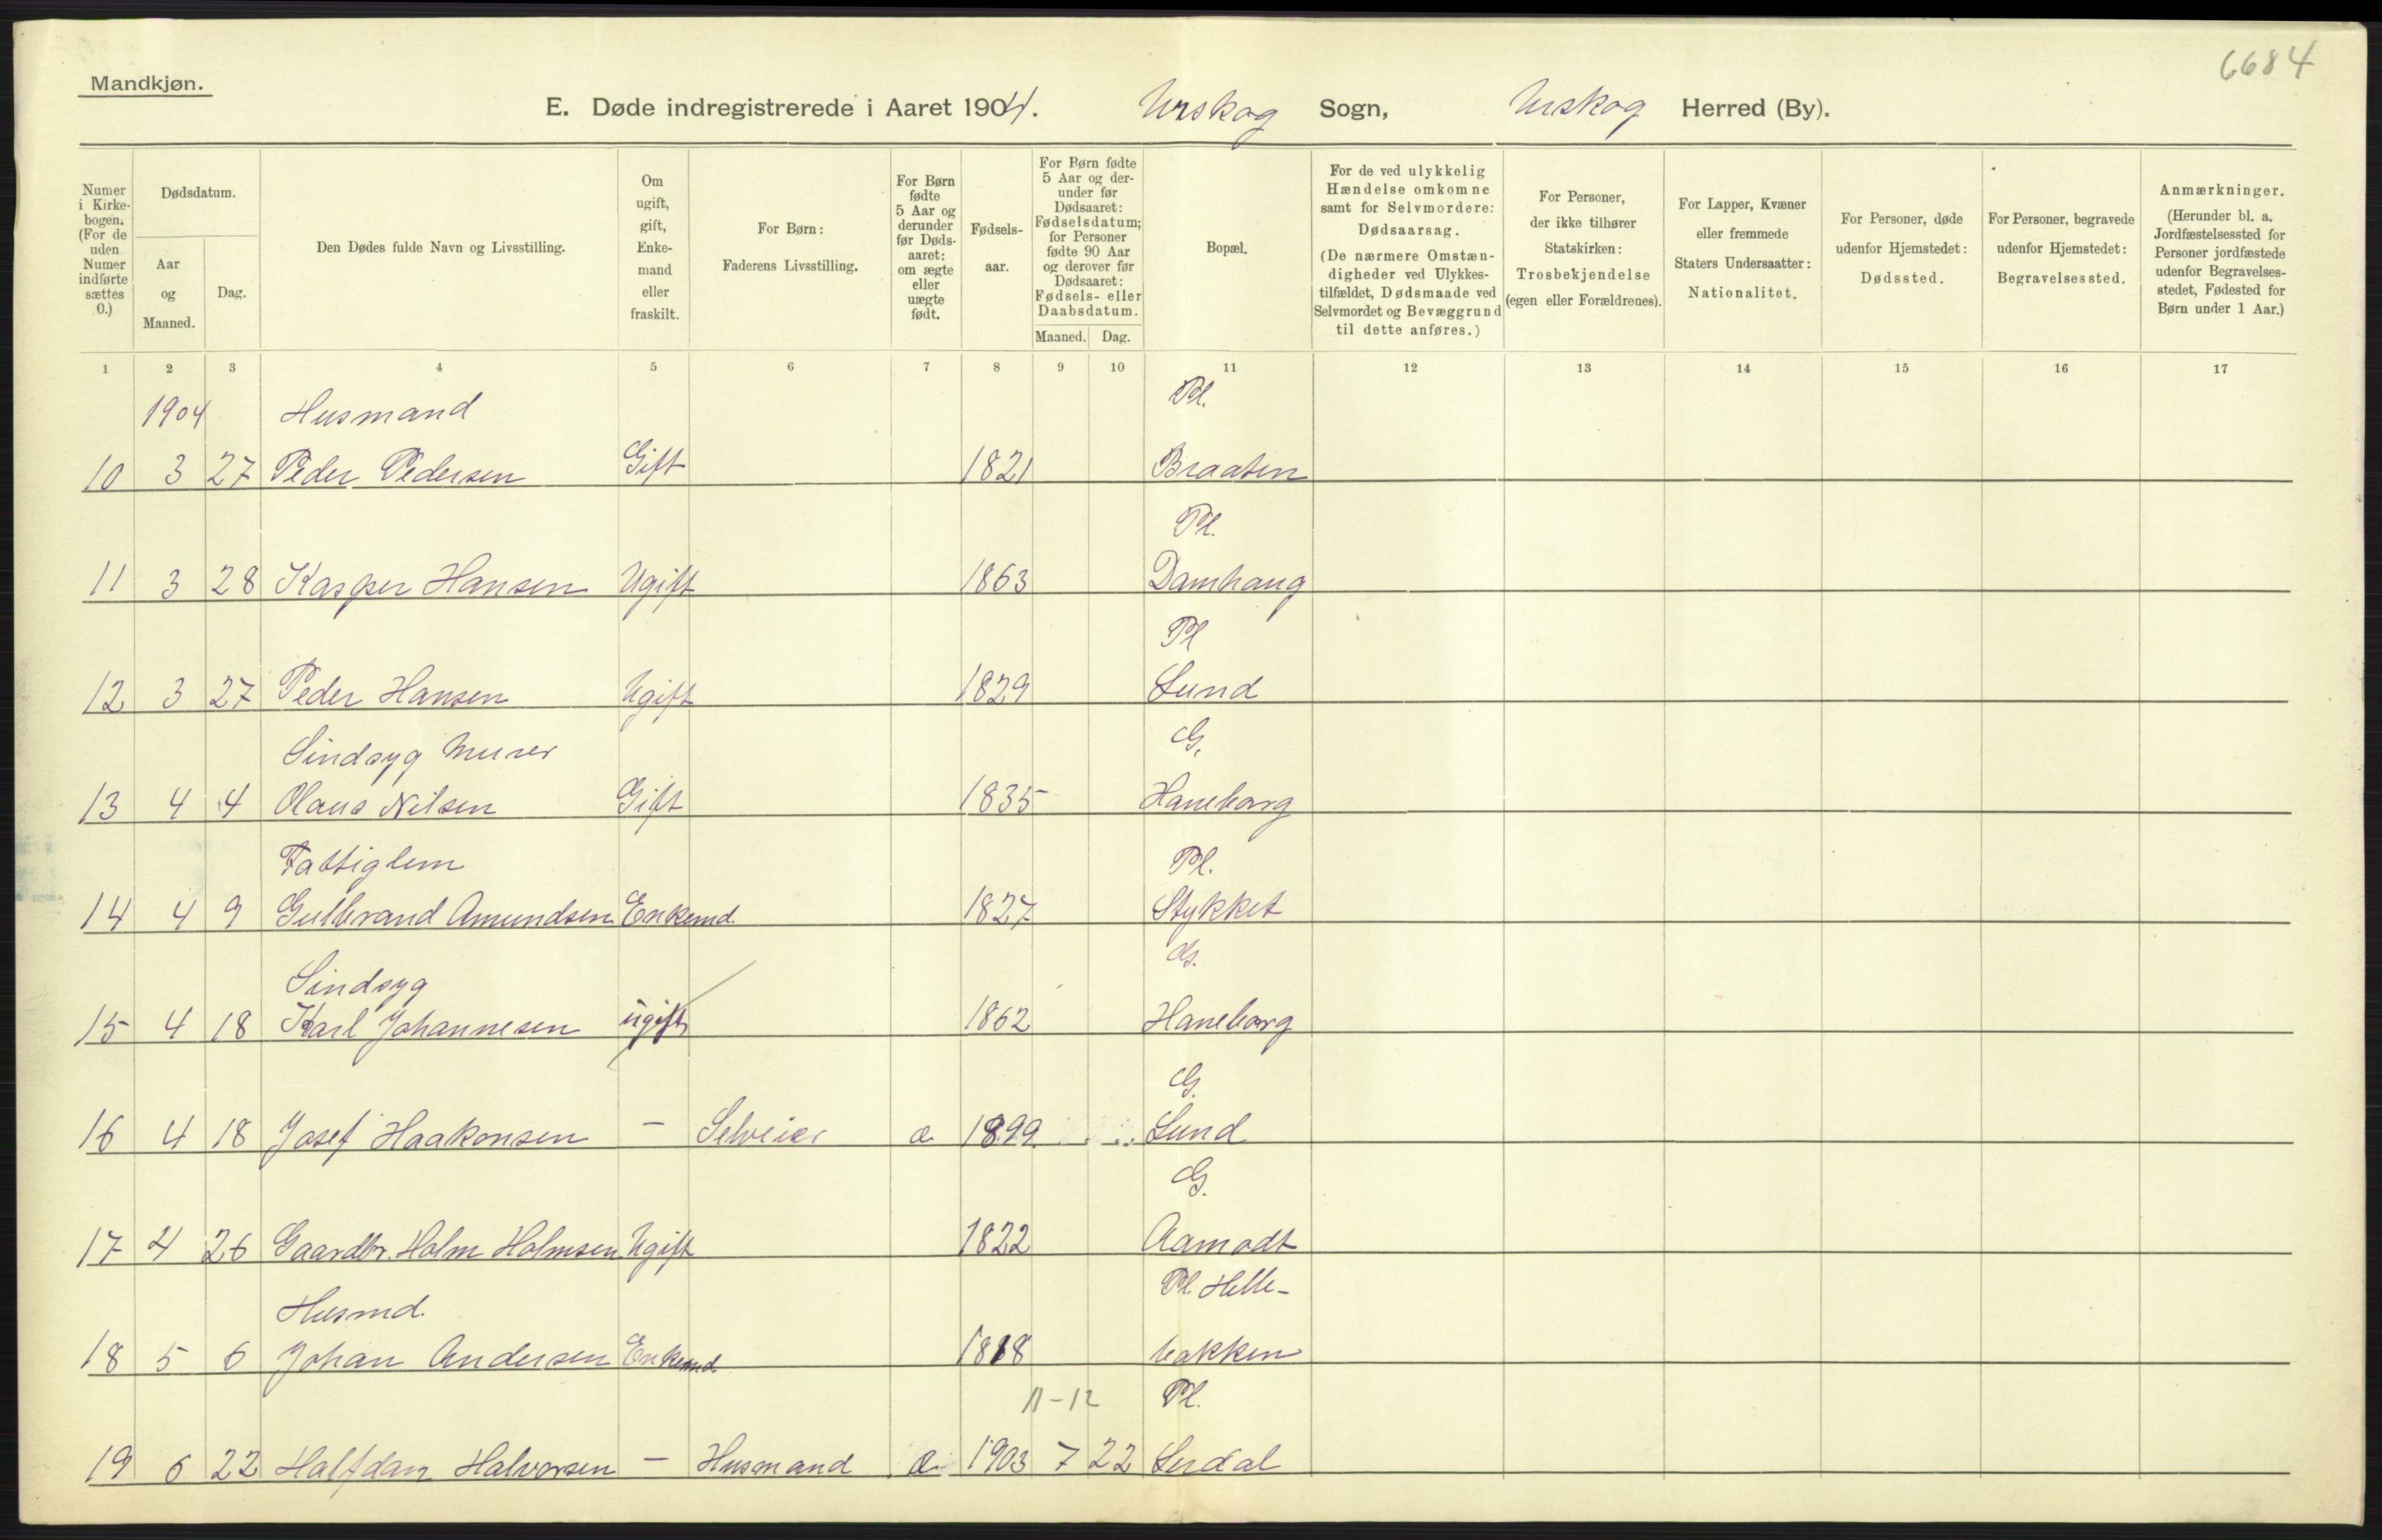 6684
Mandkjøn.
E. Døde indregistrerede i Aaret 1904. Urskog Sogn, Urskog Herred (By).
Numer i Kirkebogen. (For de uden Numer indførte sættes 0.)
Dødsdatum.
Aar og Maaned.
Dag.
Den Dødes fulde Navn og Livsstilling.
Om ugift, gift, Enkemand eller fraskilt.
For Børn: Faderens Livsstilling.
For Børn fødte 5 Aar og derunder før Dødsaaret: om ægte eller uægte født.
Fødselsaar.
For Børn fødte 5 Aar og derunder før Dødsaaret: Fødselsdatum; for Personer fødte 90 Aar og derover før Dødsaaret: Fødsels- eller Daabsdatum.
Maaned. Dag.
Bopæl.
For de ved ulykkelig Hændelse omkomne samt for Selvmordere: Dødsaarsag. (De nærmere Omstændigheder ved Ulykkestilfældet, Dødsmaade ved Selvmordet og Bevæggrund til dette anføres.)
For Personer, der ikke tilhører Statskirken: Trosbekjendelse (egen eller Forældrenes).
For Lapper, Kvæner eller fremmede Staters Undersaatter: Nationalitet.
For Personer, døde udenfor Hjemstedet: Dødssted.
For Personer, begravede udenfor Hjemstedet: Begravelsessted.
Anmærkninger. (Herunder bl. a. Jordfæstelsessted for Personer jordfæstede udenfor Begravelsesstedet, Fødested for Børn under 1 Aar.)
1 2 3 4 5 6 7 8 9 10 11 12 13 14 15 16 17
1904 Husmand Pl.
10 3 27 Peder Pedersen Gift 1821 Braaten
Pl.
11 3 28 Kasper Hansen Ugift 1863 Damhaug
Pl
12 3 27 Peder Hansen Ugift 1829 Lund
Sindsyg Murer G.
13 4 4 Olaus Nilsen Gift 1835 Haneborg
Fattiglem Pl.
14 4 9 Gulbrand Amundsen Enkemd. 1827 Stykket
Sindsyg G.
15 4 18 Karl Johannesen ugift 1862 Haneborg
G.
16 4 18 Josef Haakonsen — Selveier æ 1899 Lund
G.
17 4 26 Gaardbr. Holm Holmsen Ugift 1822 Aamodt
Husmd. Pl. Helle-
18 5 6 Johan Andersen Enkemd. 1818 bakken
11-12 Pl.
19 6 22 Halfdan Halvorsen — Husmand æ 1903 7 22 Lerdal